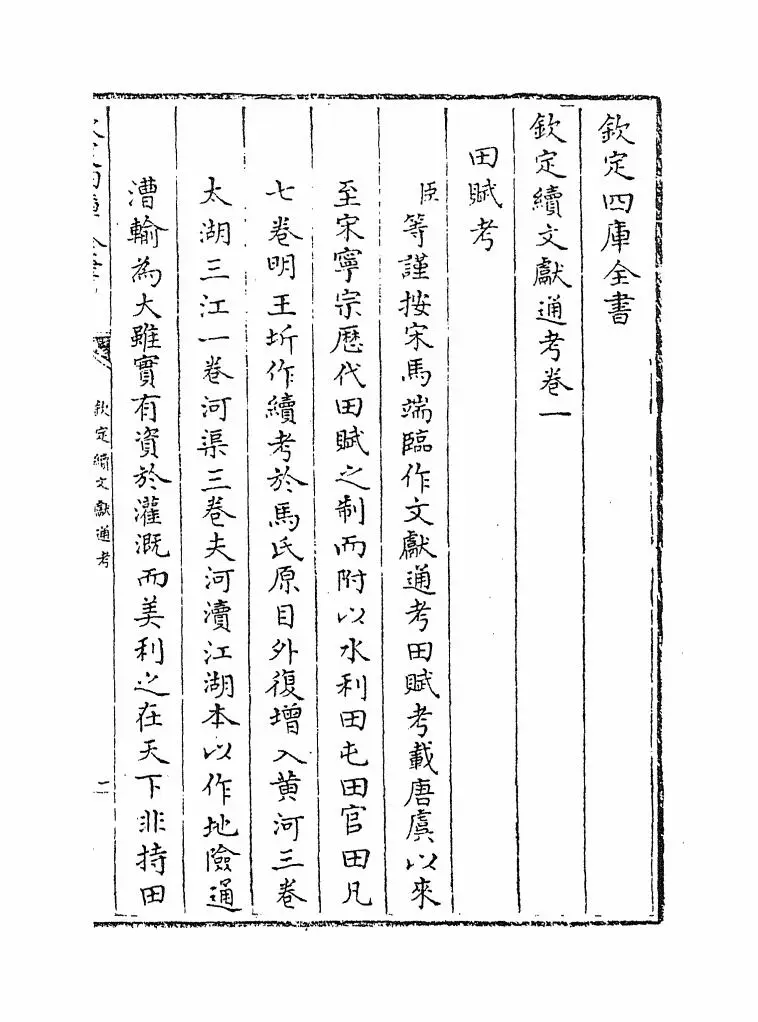 欽定四庫全書
欽定續文獻通考卷一
田賦考
臣等謹按宋馬端臨作文獻通考田賦考載唐虞以來
至宋寧宗歷代田賦之制而附以水利田屯田官田凡
七卷明王圻作續考於馬氏原目外復增入黄河三卷
太湖三江一卷河渠三卷夫河瀆江湖本以作地險通
漕輸為大雖實有資於灌溉而美利之在天下非持田
欽定續文獻通考